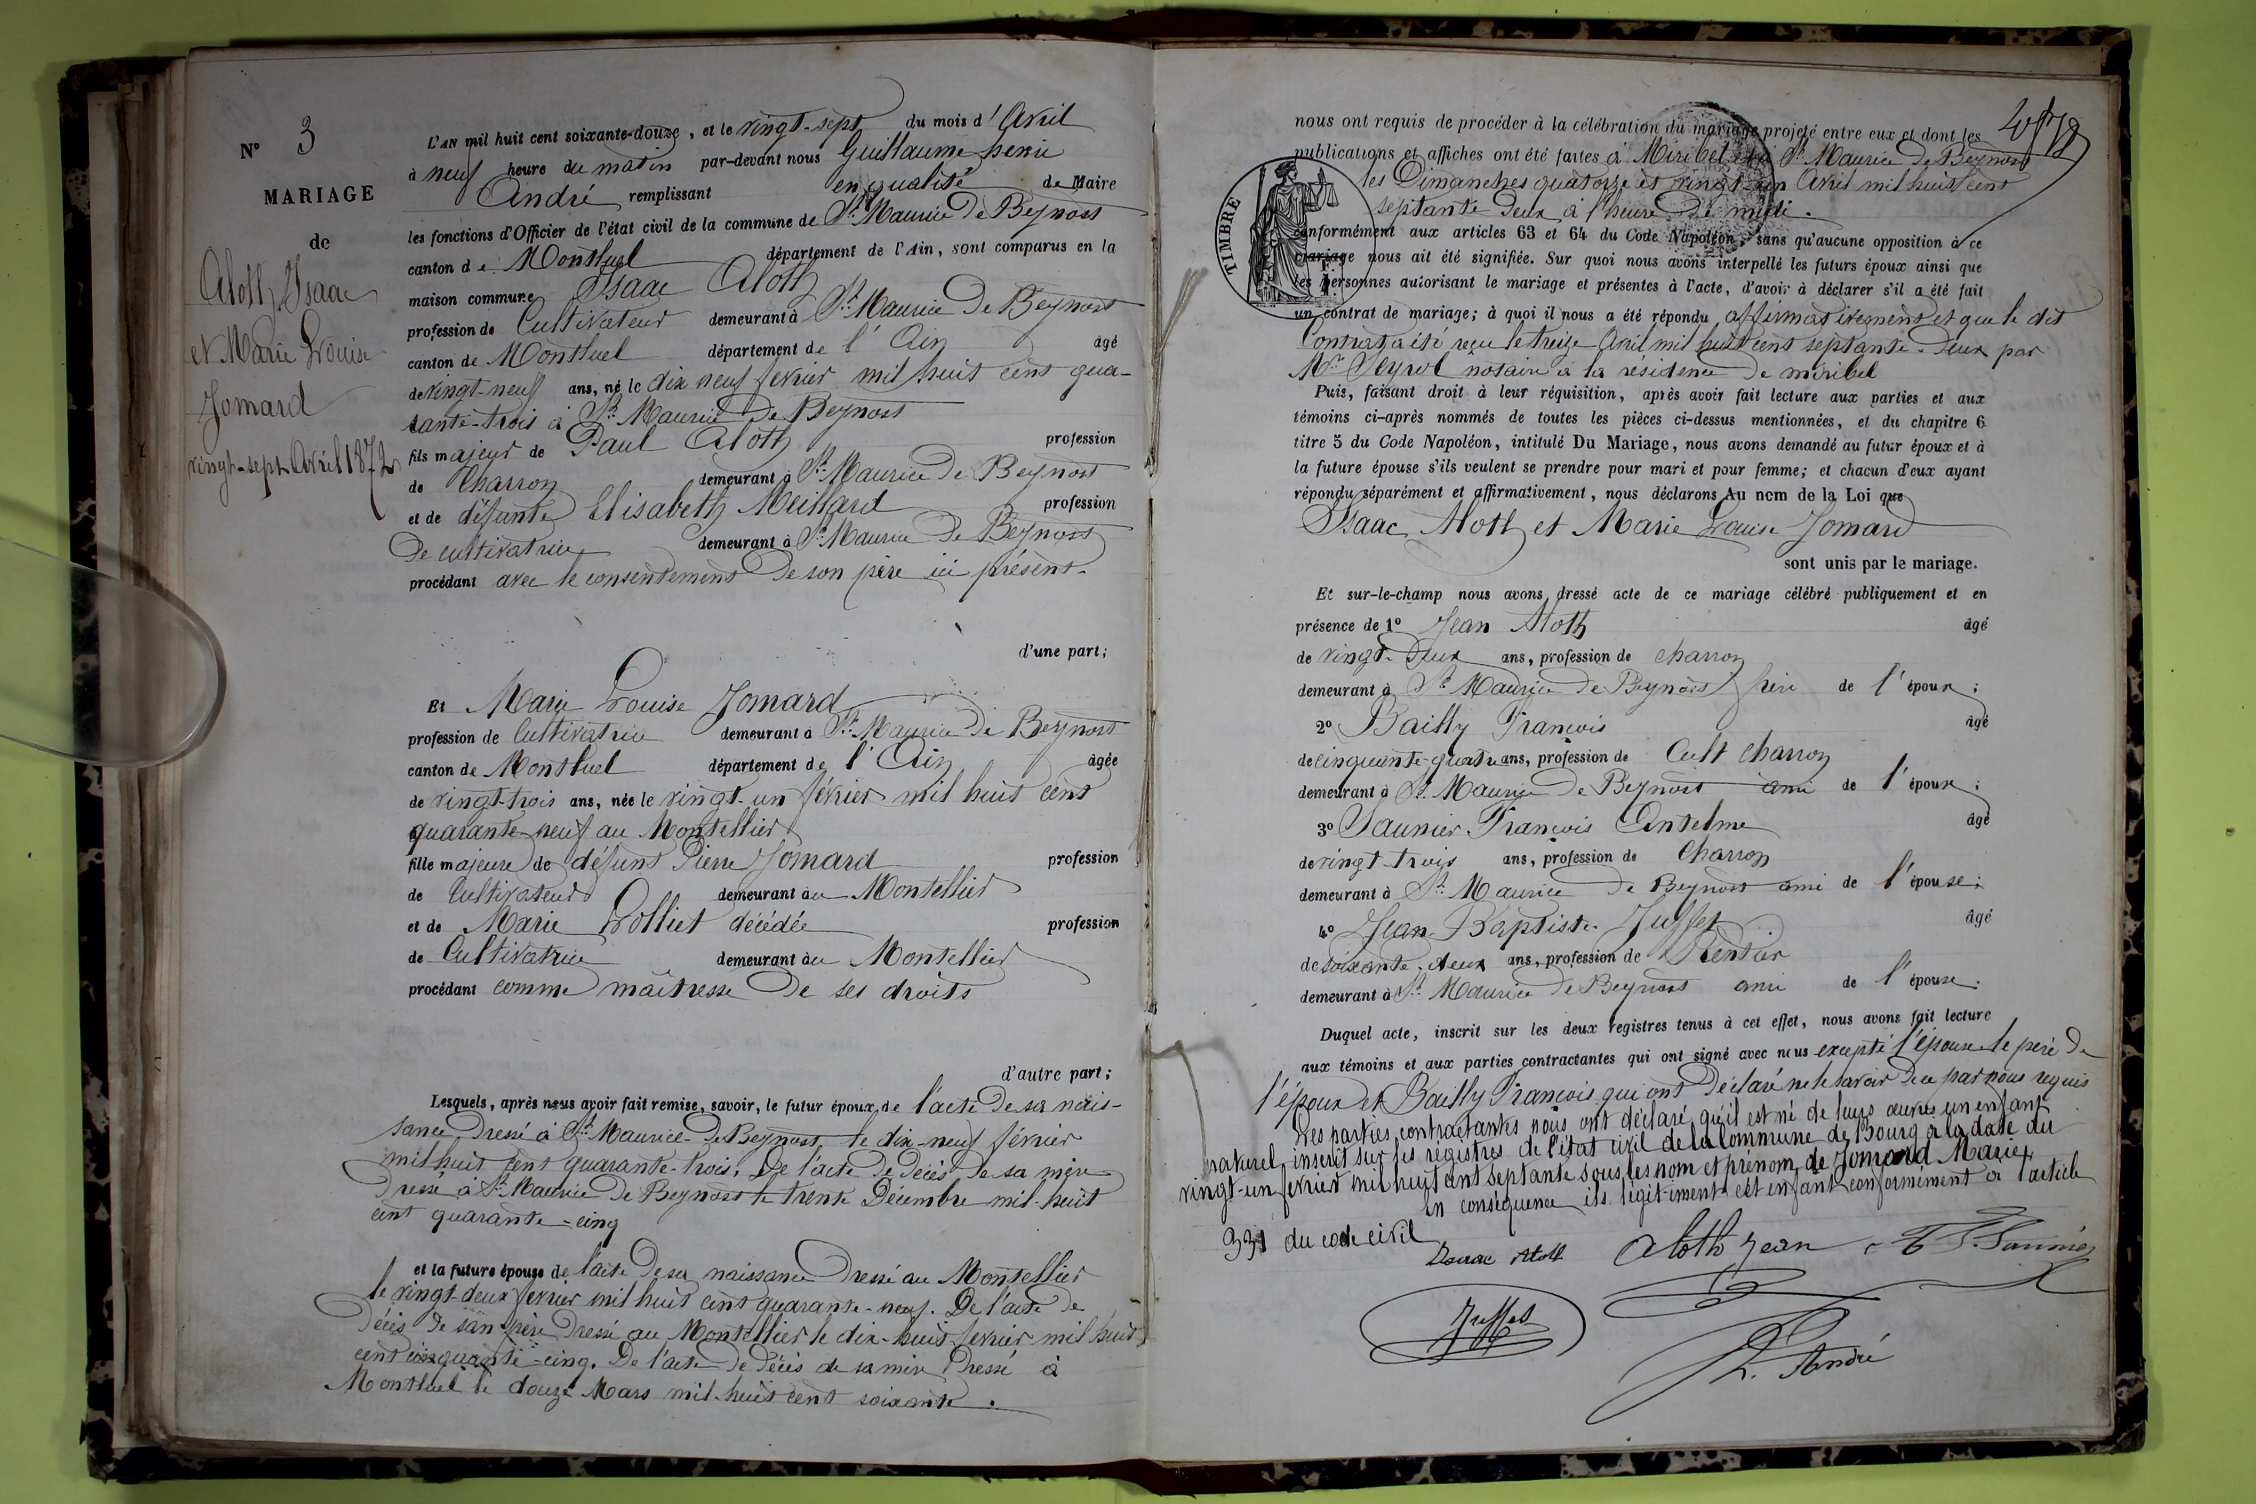 N° 3
MARIAGE
de
Aloth Isaac
et Marie Louise
Jomard
vingt-sept Avril 1872
L'AN mil huit cent soixante-douze, et le vingt-sept du mois d'Avril
à neuf heure du matin par-devant nous Guillaume henri
André remplissant en qualité de Maire
les fonctions d'Officier de l'état civil de la commune de St Maurice De Beynost
canton de Montluel département de l'Ain, sont comparus en la
maison commune Isaac Aloth
profession de Cultivateur demeurant à St Maurice De Beynost
canton de Montluel département de l'Ain âgé
de vingt-neuf ans, né le dix neuf fevrier mil huit cent qua-
rante-trois à St Maurice de Beynost
fils majeur de Paul Aloth profession
de Charron demeurant à St Maurice de Beynost
et de défunte Elisabeth Meillard profession
De cultivatrice demeurant à St Maurice De Beynost
procédant avec le consentement De son père ici présent.
d'une part;
Et Marie Louise Jomard
profession de Cultivatrice demeurant à St Maurice De Beynost
canton de Montluel département de l'Ain âgée
de vingt-trois ans, née le vingt-un février mil huit cent
quarante-neuf au Montellier
fille majeure de défunt Pierre Jomard profession
de Cultivateur demeurant au Montellier
et de Marie Lolliet décédée profession
de Cultivatrice demeurant au Montellier
procédant comme maîtresse De ses droits
d'autre part;
Lesquels, après nous avoir fait remise, savoir, le futur époux de l'acte De sa nais-
sance Dressé à St Maurice De Beynost, le dix-neuf février
mil huit cent quarante-trois. De l'acte De décès De sa mère
Dressé à St Maurice De Beynost le trente Décembre mil-huit
cent quarante-cinq
et la future épouse de l'acte De sa naissance Dressé au Montellier
le vingt-deux fevrier mil huit cent quarante-neuf. De l'acte De
décès De son père Dressé au Montellier le dix-huit fevrier mil huit
cent cinquante-cinq. De l'acte De décès de sa mère Dressé à
Montluel le douze Mars mil-huit cent soixante.
nous ont requis de procéder à la célébration du mariage projeté entre eux et dont les
publications et affiches ont été faites à Miribel et à St Maurice De Beynost
les Dimanches quatorze et vingt-un Avril mil huit cent
septante Deux à l'heure De midi.
TIMBRE
conformément aux articles 63 et 64 du Code Napoléon, sans qu'aucune opposition à ce
mariage nous ait été signifiée. Sur quoi nous avons interpellé les futurs époux ainsi que
les personnes autorisant le mariage et présentes à l'acte, d'avoir à déclarer s'il a été fait
un contrat de mariage; à quoi il nous a été répondu affirmativement et que le dit
Contrat a été reçu le treize Avril mil huit cent septante-Deux par
Mr Peyrol notaire à la résidence De miribel
Puis, faisant droit à leur réquisition, après avoir fait lecture aux parties et aux
témoins ci-après nommés de toutes les pièces ci-dessus mentionnées, et du chapitre 6
titre 5 du Code Napoléon, intitulé Du Mariage, nous avons demandé au futur époux et à
la future épouse s'ils veulent se prendre pour mari et pour femme; et chacun d'eux ayant
répondu séparément et affirmativement, nous déclarons Au nom de la Loi que
Isaac Aloth et Marie Louise Jomard
sont unis par le mariage.
Et sur-le-champ nous avons dressé acte de ce mariage célébré publiquement et en
présence de 1° Jean Aloth âgé
de vingt-Deux ans, profession de charron
demeurant à St Maurice De Beynost frère de l'époux;
2° Bailly François âgé
de cinquante-quatre ans, profession de Cult Charron
demeurant à St Maurice De Beynost ami de l'époux;
3° Saunier François Anselme âgé
de vingt-trois ans, profession de Charron
demeurant à St Maurice De Beynost ami de l'épouse;
4° Jean-Baptiste Juffet âgé
de soixante-deux ans, profession de Rentier
demeurant à St Maurice De Beynost ami de l'épouse.
Duquel acte, inscrit sur les deux registres tenus à cet effet, nous avons fait lecture
aux témoins et aux parties contractantes qui ont signé avec nous excepté l'épouse le père De
l'époux et Bailly François qui ont Déclaré ne le savoir De ce par nous requis
Les parties contractantes nous ont déclaré qu'il est né de leurs œuvres un enfant
naturel inscrit sur les registres de l'état civil de la Commune de Bourg à la date du
vingt-un fevrier mil huit cent septante sous les nom et prénom de Jomard Marie,
En conséquence ils légitiment cet enfant conformément à l'article
331 du code civil
Isaac Aloth Aloth Jean F. Saunier
Juffet
h. André